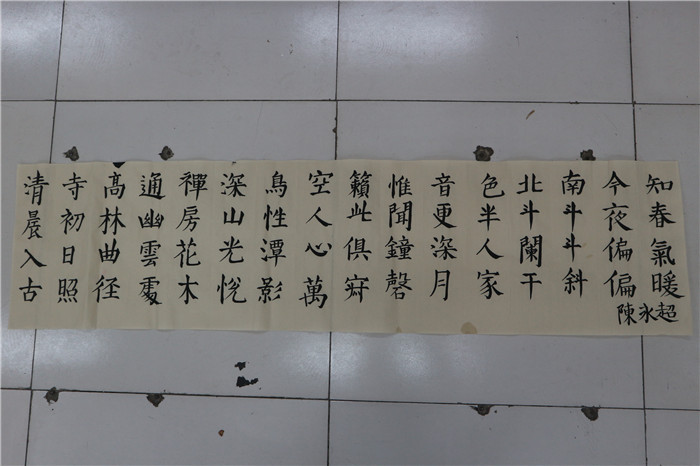 清晨入古
寺初日照
高林曲径
通幽雲處
禪房花木
深山光悅
鳥性潭影
空人心萬
籟此俱寂
惟聞鐘磬
音更深月
色半人家
北斗闌干
南斗斗斜
今夜偏偏
知春氣暖
陳永超